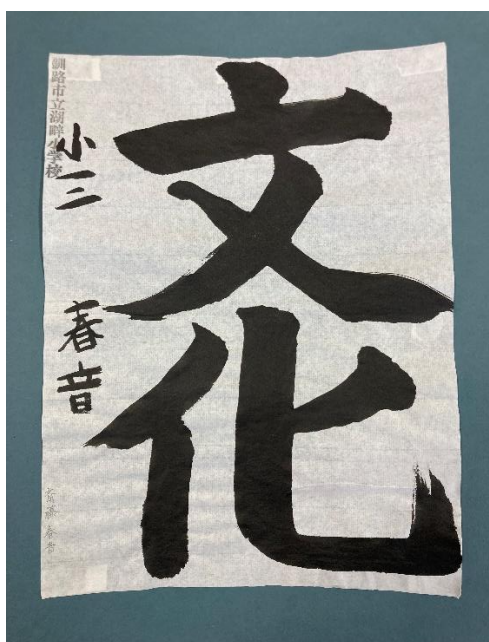 文化
釧路市立湖畔小学校
小三 春音